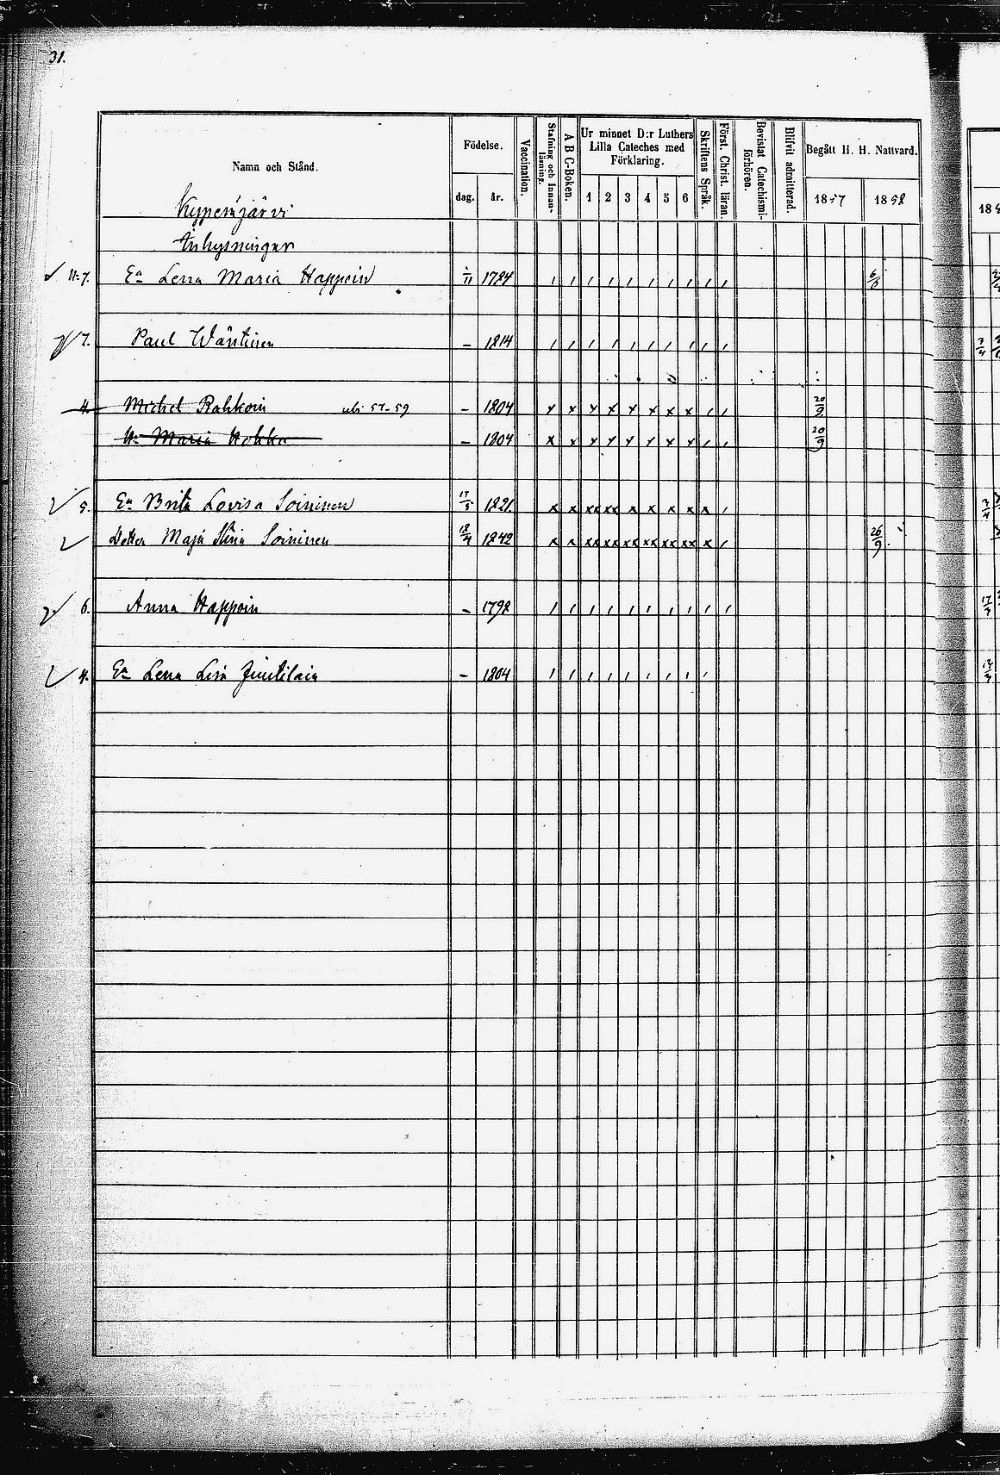 31.
Namn och Stånd.
Födelse.
dag.
år.
Vaccination.
Stafning och Innanläsning.
A B C-Boken.
Ur minnet D:r Luthers Lilla Cateches med Förklaring.
1 2 3 4 5 6
Skriftens Språk.
Först. Christ. läran.
Bevistat Catechismiförhören.
Blifvit admitterad.
Begått H. H. Nattvard.
1857 1858
Kypenjärvi
Inhysningar
11.7. Ea Lena Maria Happoin 1784 6/6
7. Paul Wäntinen – 1814
4. Michel Rahkoin 57-59 – 1804 20/9
H: Maria Hokka – 1804 20/9
5. Ea Brita Lovisa Soininen 17/5 1821
Dotter Maja Stina Soininen 18/4 1842 26/9
6. Anna Happoin – 1792
4. Ea Lena Lisa Juutilain – 1804